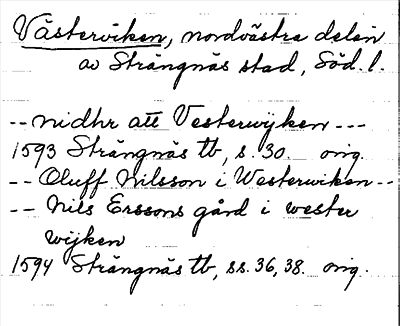 Västerviken, nordvästra delen
av Strängnäs stad, Söd. l.
-- nidhr att Vesterwijken ---
1593 Strängnäs tb, s. 30. orig.
-- Oluff Nilsson i Westerwiken --
-- Nils Erssons gård i wester
wijken
1594 Strängnäs tb, ss. 36, 38. orig.